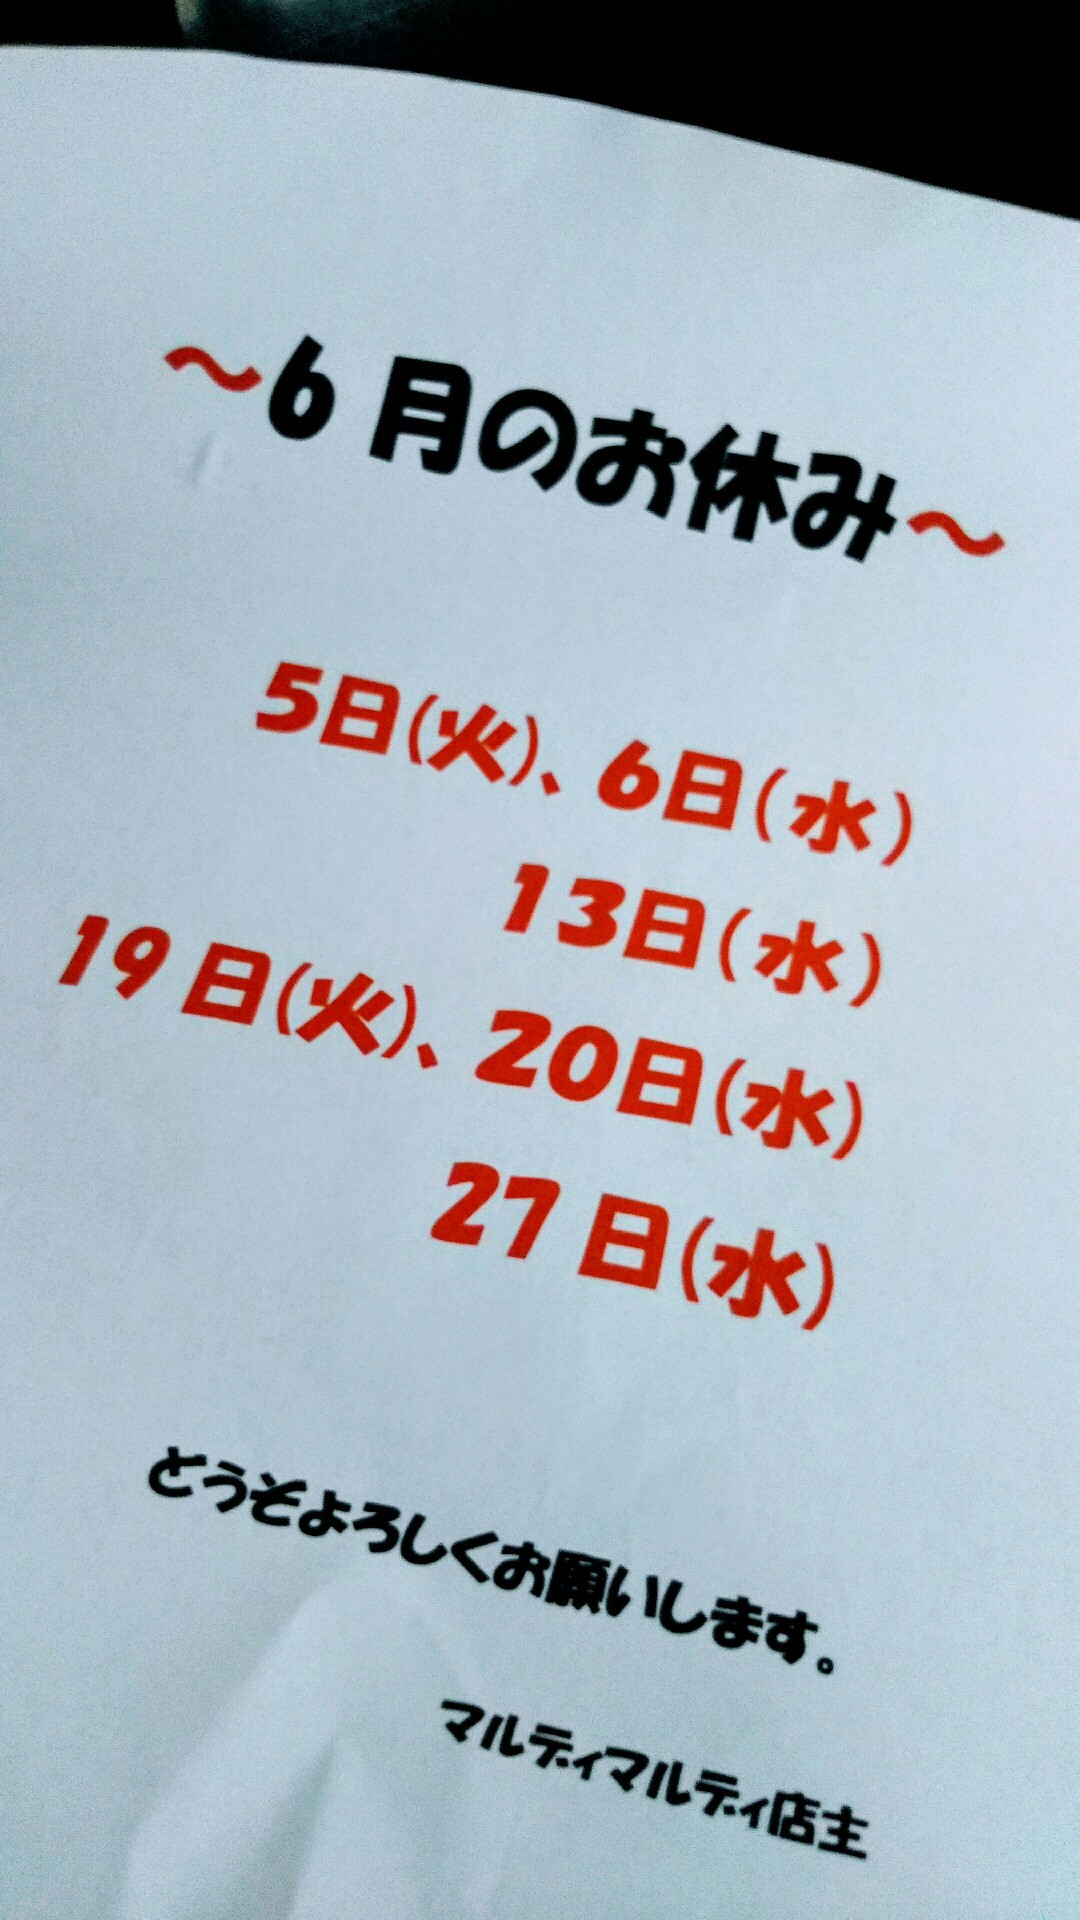 ～6月のお休み～
5日(火)、6日(水)
13日(水)
19日(火)、20日(水)
27日(水)
どうぞよろしくお願いします。
マルディマルディ店主